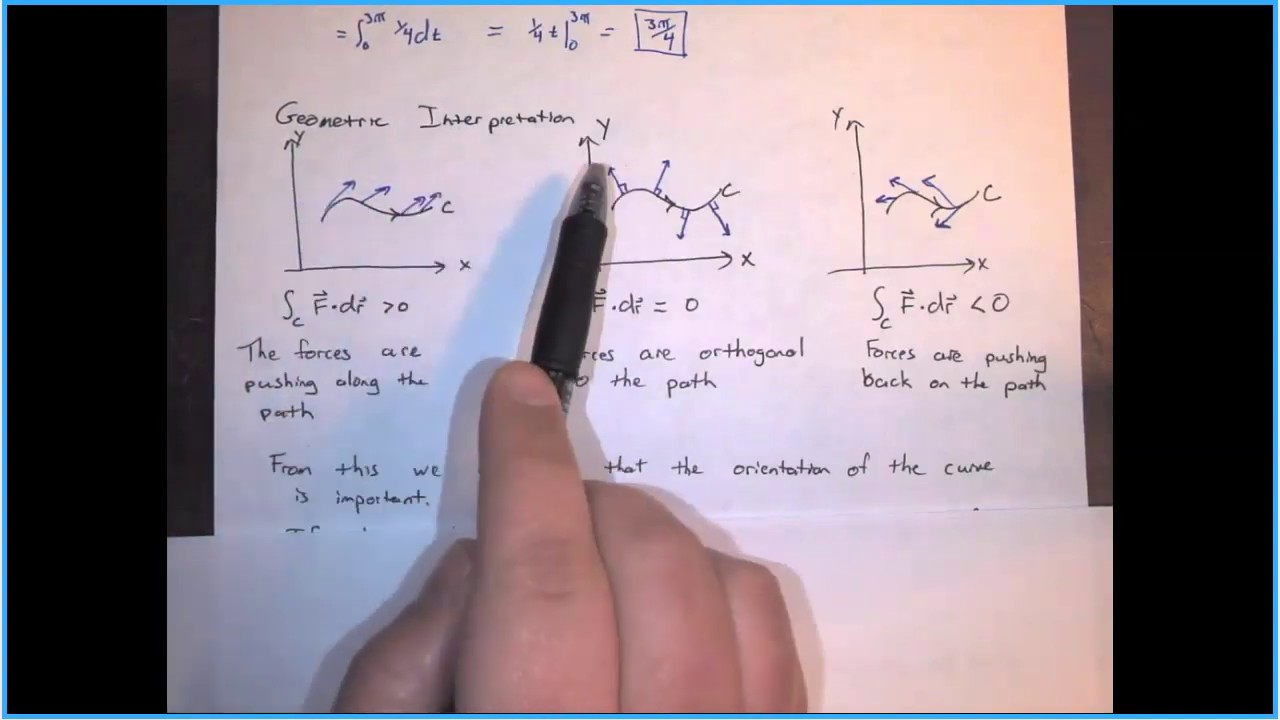 = ∫₀^3π 1/4 dt = 1/4 t |₀^3π = 3π/4
Geometric Interpretation
Y Y Y
C C C
X X X
∫_C F⃗·dr⃗ > 0 F⃗·dr⃗ = 0 ∫_C F⃗·dr⃗ < 0
The forces are
pushing along the
path
are orthogonal
the path
Forces are pushing
back on the path
From this we that the orientation of the curve
is important.